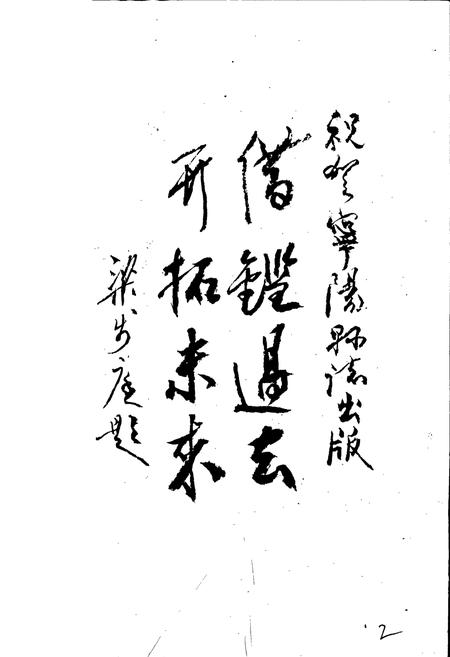 祝贺寧陽县誌出版
借鑑過去
开拓未来
梁步庭題
2